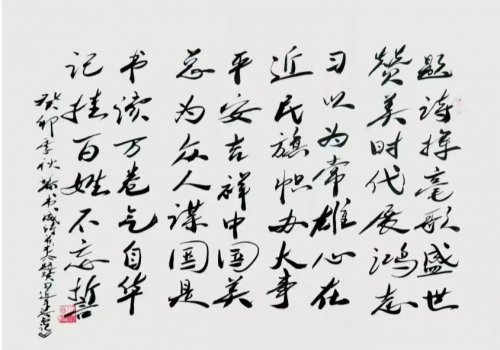 题诗挥毫歌盛世
赞美时代展鸿志
习以为常雄心在
近民旗帜办大事
平安吉祥中国美
总为众人谋国是
书读万卷气自华
记挂百姓不忘誓
癸卯季秋